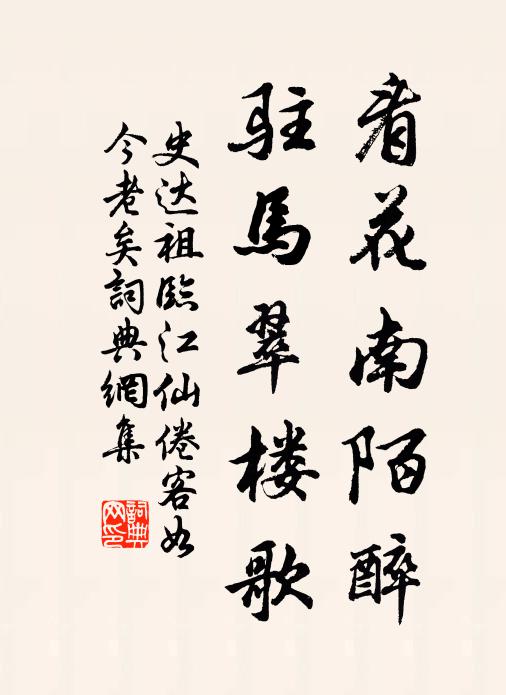 看花南陌醉
駐馬翠楼歌
史达祖臨江仙倦客如
今老矣詞典網集
詞典
网印